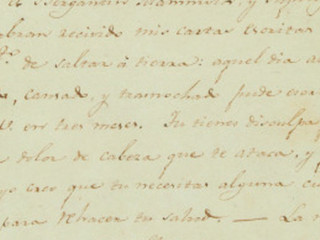 el Bergantin
abran recivido mis cartas escritas
de saltar à tierra: aquel dia
cansado, y tramochado pude
en tres meses. Tu tienes disculpa
dolor de cabeza que te ataca, y
yo creo que tu necesitas alguna
para rehacer tu salud. — La